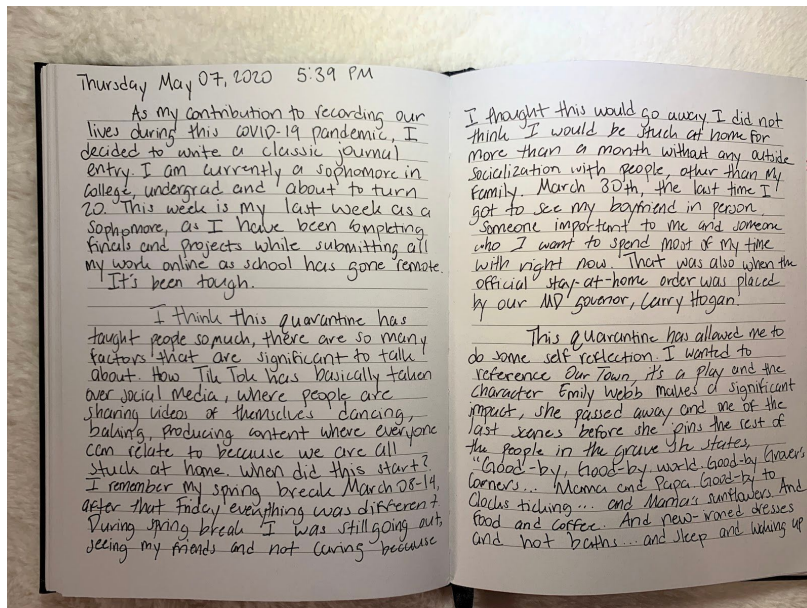 Thursday May 07, 2020 5:39 PM
As my contribution to recording our
lives during this COVID-19 pandemic, I
decided to write a classic journal
entry. I am currently a sophomore in
college, undergrad and about to turn
20. This week is my last week as a
sophomore, as I have been completing
finals and projects while submitting all
my work online as school has gone remote.
It's been tough.
I think this quarantine has
taught people so much, there are so many
factors that are significant to talk
about. How Tik Tok has basically taken
over social media, where people are
sharing videos of themselves dancing,
baking, producing content where everyone
can relate to because we are all
stuck at home. When did this start?
I remember my spring break March 08-14,
after that Friday everything was different.
During spring break I was still going out,
seeing my friends and not caring because
I thought this would go away. I did not
think I would be stuck at home for
more than a month without any outside
socialization with people, other than my
family. March 30th, the last time I
got to see my boyfriend in person.
Someone important to me and someone
who I want to spend most of my time
with right now. That was also when the
official stay-at-home order was placed
by our MD govenor, Larry Hogan.
This quarantine has allowed me to
do some self reflection. I wanted to
reference Our Town, it's a play and the
character Emily Webb makes a significant
impact, she passed away and one of the
last scenes before she pins the rest of
the people in the grave she states,
"Good-by, Good-by world. Good-by Grover's
Corners... Mama and Papa. Good-by to
Clocks ticking... and Mama's sunflowers. And
food and coffee. And new-ironed dresses
and hot baths... and sleep and waking up